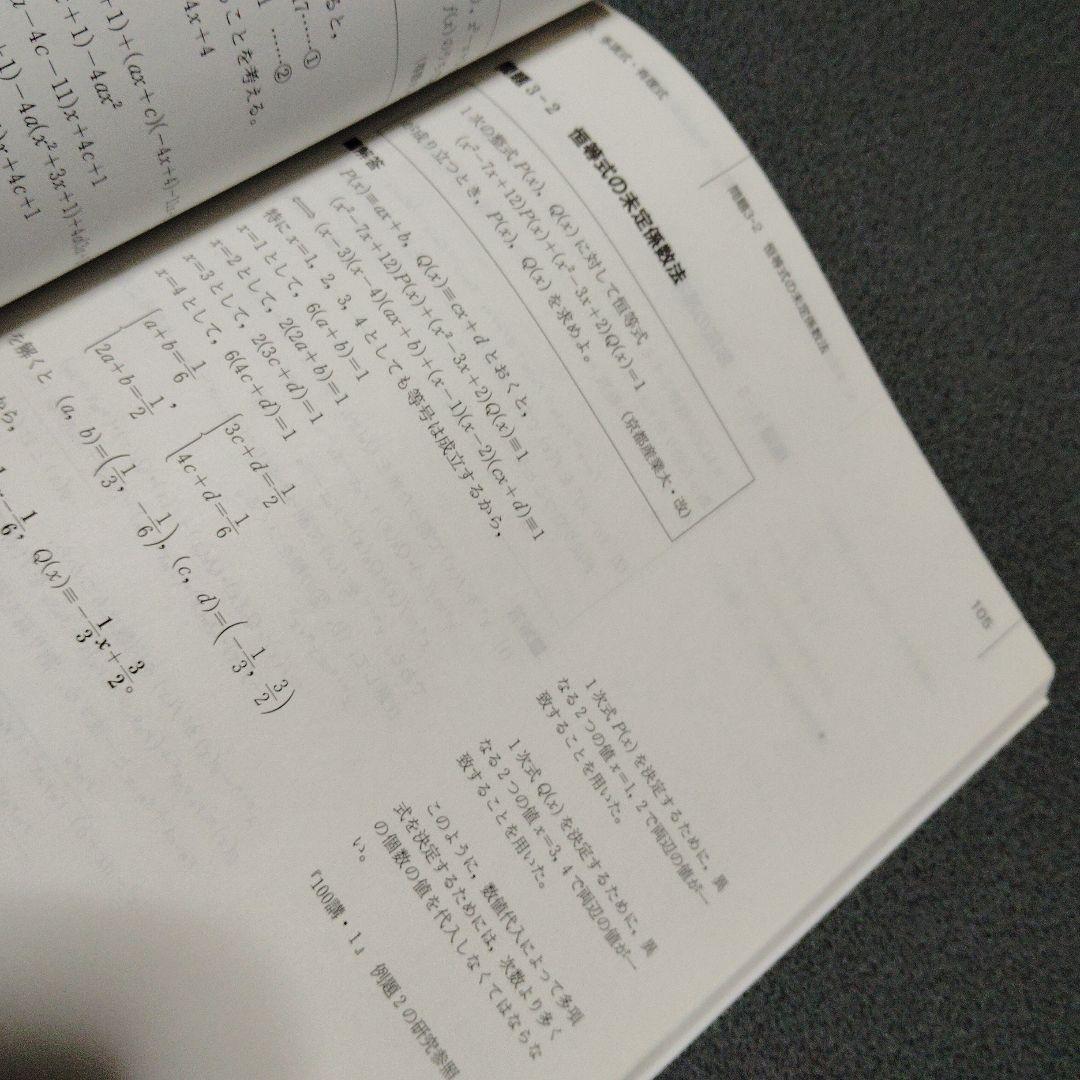 ると，
7……①
……②
ことを考える。
4x+4
+1)+(ax+c)(-4x+4)-1
+1)-4ax²
-4c-11)x+4c+1
+1)-4a(x²+3x+1)+4
x+4c+1
問題3-2 恒等式の未定係数法
105
■問題3-2 恒等式の未定係数法
1次の整式P(x)，Q(x)に対して恒等式
(x²-7x+12)P(x)+(x²-3x+2)Q(x)=1
が成り立つとき，P(x)，Q(x)を求めよ。
(京都産業大・改)
■解答
P(x)=ax+b，Q(x)=cx+dとおくと，
(x²-7x+12)P(x)+(x²-3x+2)Q(x)=1
⟺(x-3)(x-4)(ax+b)+(x-1)(x-2)(cx+d)=1
特にx=1，2，3，4としても等号は成立するから，
x=1として，6(a+b)=1
x=2として，2(2a+b)=1
x=3として，2(3c+d)=1
x=4として，6(4c+d)=1
{a+b=1/6，{3c+d=1/2
2a+b=1/2 4c+d=1/6
を解くと (a，b)=(1/3，-1/6)，(c，d)=(-1/3，3/2)
から，
-1/6，Q(x)=-1/3x+3/2。
1次式P(x)を決定するために，異
なる2つの値x=1，2で両辺の値が一
致することを用いた。
1次式Q(x)を決定するために，異
なる2つの値x=3，4で両辺の値が一
致することを用いた。
このように，数値代入によって多項
式を決定するためには，次数より多く
の個数の値を代入しなくてはならな
い。
『100講・1』 例題2の研究参照